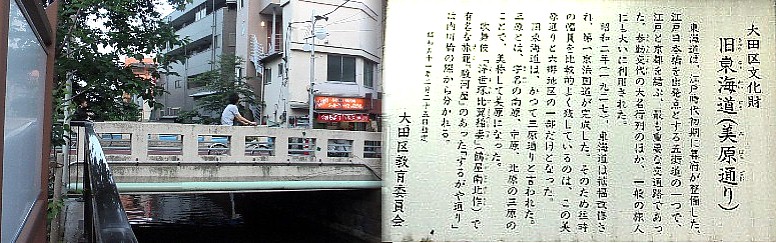 大田区文化財
旧東海道(美原通り)
東海道は、江戸時代初期に幕府が整備した、
江戸日本橋を出発点とする五街道の一つで、
江戸と京都を結ぶ、最も重要な交通路であっ
た。参勤交代の大名行列のほか、一般の旅人
にも大いに利用された。
昭和二年(一九二七)、東海道は拡幅改修さ
れ、第一京浜国道が完成した。そのため往時
の幅員を比較的よく残しているのは、この美
原通りと六郷地区の一部だけとなった。
旧東海道は、かつて三原通りと言われた。
三原とは、字名の南原、中原、北原の三原の
ことで、美称して美原になった。
歌舞伎「浮世塚比翼稲妻」(鶴屋南北作)で
有名な旅籠「駿河屋」のあった「するがや通り」
は内川橋の際から分かれる。
大田区教育委員会